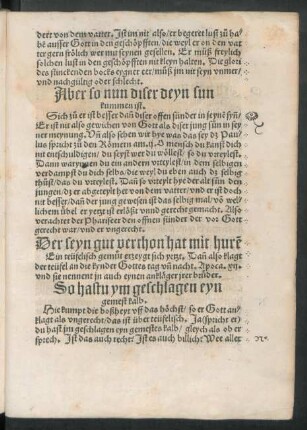 dert von dem vatter. Ist im nit also/ er begeret lust zů ha-
be ausser Gott in den geschöpfften die weyl er on den vat
ter gern frölich wer mit seynen gesellen. Er můß freylich
solchen lust in den geschöpfften nit kleyn halten. Die glori
des stinckenden bocks eygnet er/ můß im nit seyn vnwer/
vnd nach gültig oder schlecht.
Aber so nun diser deyn sun
kummen ist.
Sich zů er ist besser dañ diser offen sünder in seynē syñ/
Er ist nit also gewichen von Gott als diser jung sun in sey
ner meynung. Uñ also sehen wir wie war das sey dz Pau/
lus spricht zů den Römern am .ij. O mensch du kanst dich
nit entschuldigen/ du seyst wer du wöllest/ so du vrteylest.
Dann waryñ du ein andern vrteylest/ in dem selbigen
verdampst du dich selbs/ die weyl du eben auch dz selbig
thůst/ das du vrteylest. Dañ so vrteylt hye der alt sun den
jungen/ dz er abgeteylt het von dem vatter/ vnd er ist doch
nit besser/ dañ der jung gewesen ist das selbig mal/ vō wel/
lichem übel er yetz ist erlößt vnnd gerecht gemacht. Also
verachtet der Phariseer den offnen sünder der vor Gott
gerecht war/ vnd er vngerecht.
Der seyn gut verthon hat mit hurē
Ein teüfelisch gemüt erzeygt sich yetzt. Dañ also klagt
der teüfel an die kynder Gottes tag vñ nacht. Apoca. xij.
vnd sie nennent jn auch eynen ankläger yrer brüder.
So hastu ym geschlagen eyn
gemest kalb.
Hie kumpt die boßheyt vff das höchst/ so er Gott an/
klagt als vngerecht/ das ist über teüfelisch. Ja (spricht er)
du hast jm geschlagen eyn gemestes kalb/ gleych als ob er
sprech. Ist das auch recht? Ist es auch billich? Wer aller